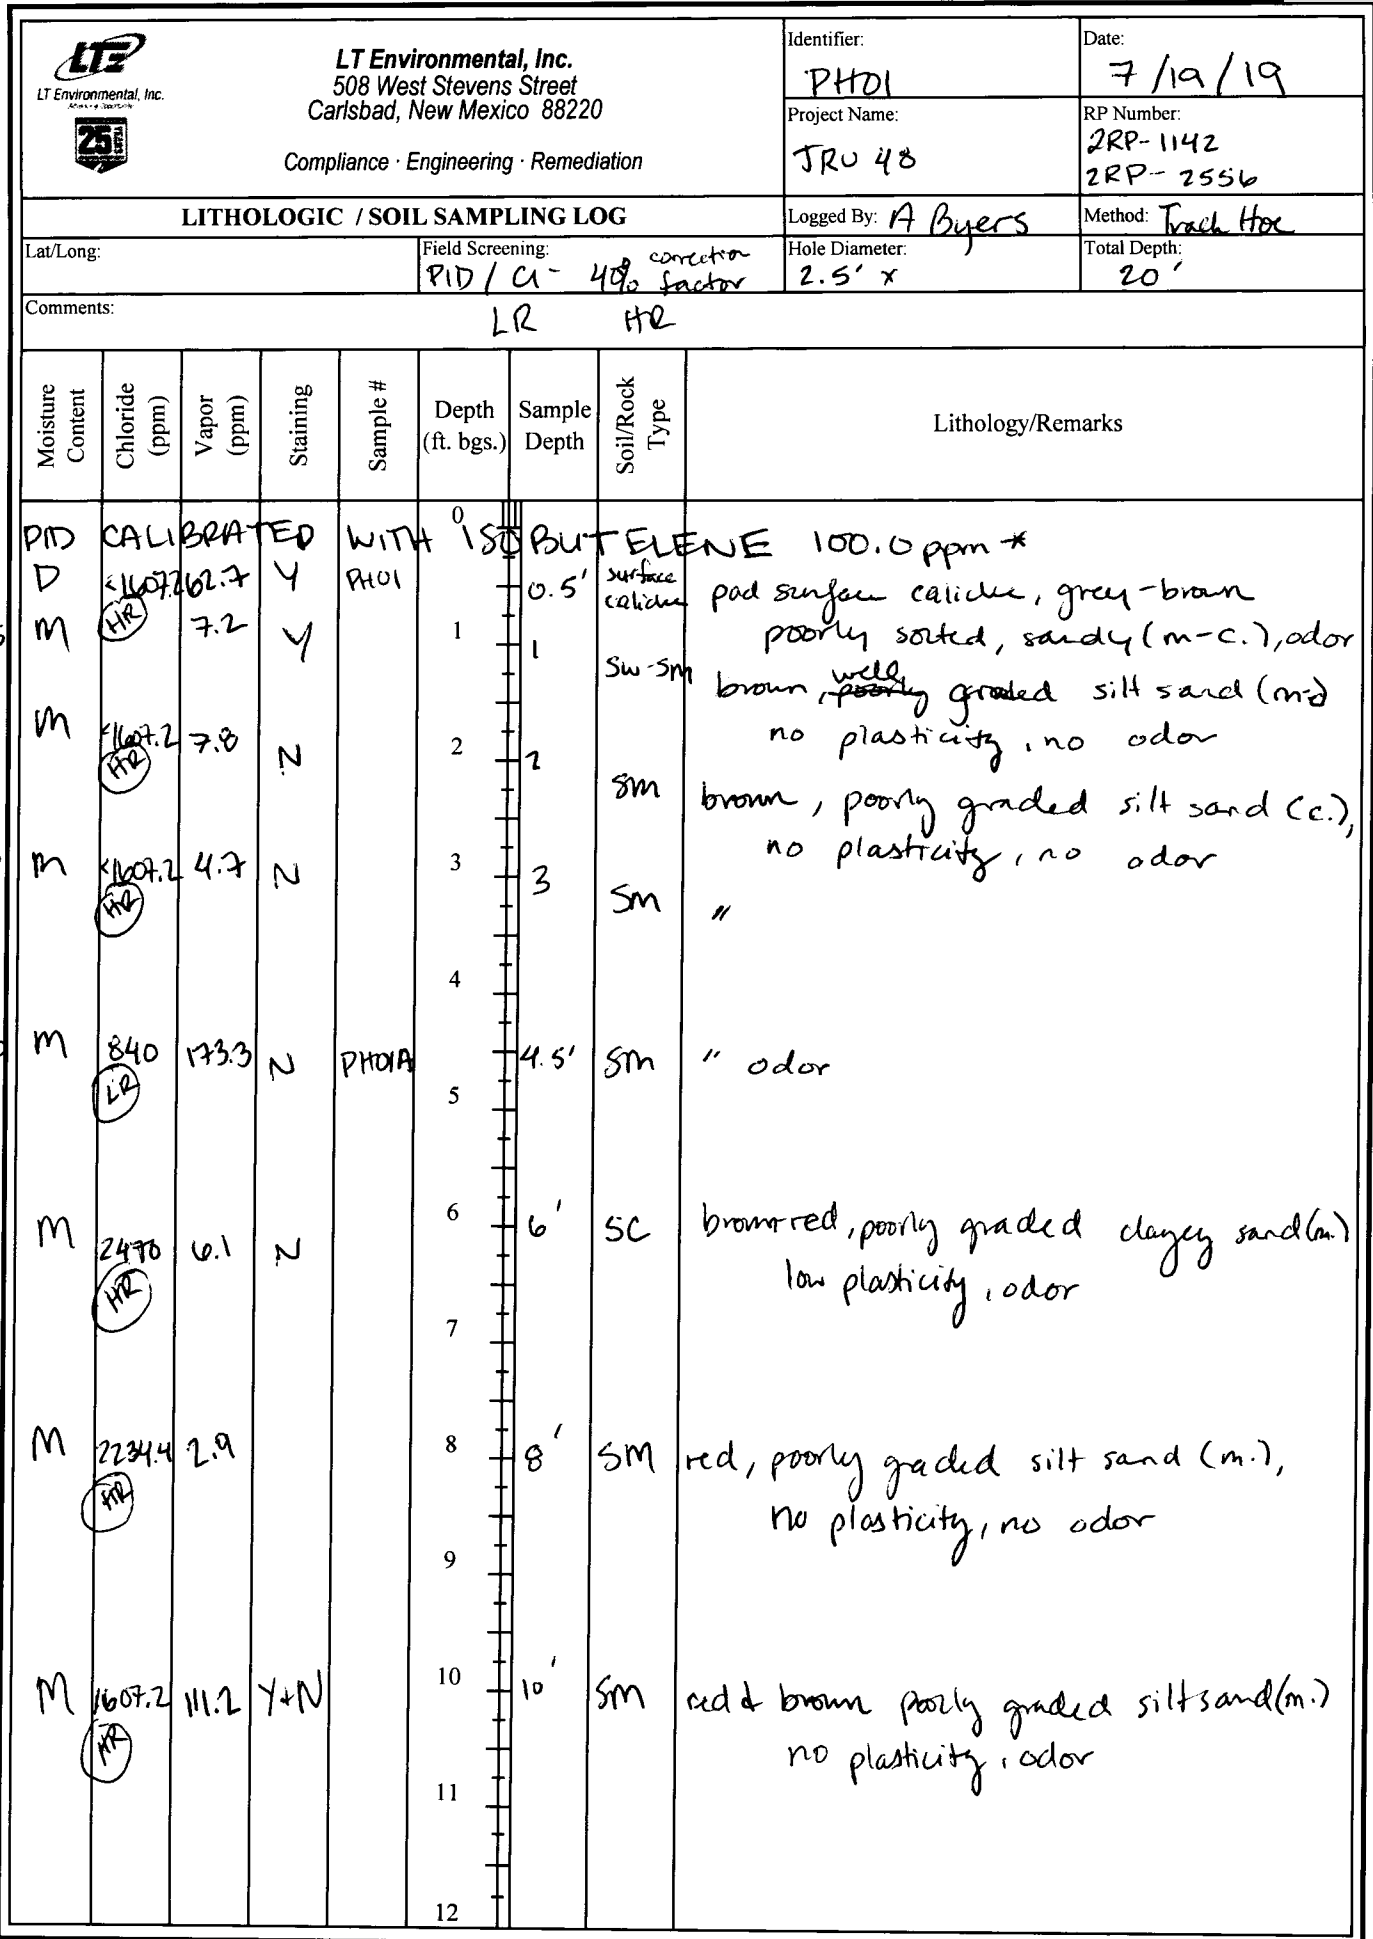 LTE
LT Environmental, Inc.
25 YEARS
LT Environmental, Inc.
508 West Stevens Street
Carlsbad, New Mexico 88220
Compliance · Engineering · Remediation
Identifier:
PH01
Date:
7/19/19
Project Name:
JRU 48
RP Number:
2RP-1142
2RP-2556
LITHOLOGIC / SOIL SAMPLING LOG
Logged By: A Byers
Method: Track Hoe
Lat/Long:
Field Screening:
PID / Cl- 40% correction factor
Hole Diameter:
2.5' x
Total Depth:
20'
Comments:
LR HR
Moisture Content
Chloride (ppm)
Vapor (ppm)
Staining
Sample #
Depth (ft. bgs.)
Sample Depth
Soil/Rock Type
Lithology/Remarks
0
PID CALIBRATED WITH ISOBUTELENE 100.0 ppm *
D <1607.2 62.7 Y PH01 0.5' surface caliche pad surface caliche, grey-brown
HR poorly sorted, sandy (m-c.), odor
M 7.2 Y 1 1 SW-SM brown, poorly well graded silt sand (m-c)
no plasticity, no odor
M <1607.2 7.8 N 2 2 SM brown, poorly graded silt sand (c.),
HR no plasticity, no odor
M <1607.2 4.7 N 3 3 SM "
HR
4
M 840 173.3 N PH01A 4.5' SM " odor
LR
5
M 2470 6.1 N 6 6' SC brown-red, poorly graded clayey sand (m.)
HR low plasticity, odor
7
M 2234.4 2.9 8 8' SM red, poorly graded silt sand (m.),
HR no plasticity, no odor
9
M 1607.2 111.2 Y+N 10 10' SM red & brown poorly graded silt sand (m.)
HR no plasticity, odor
11
12